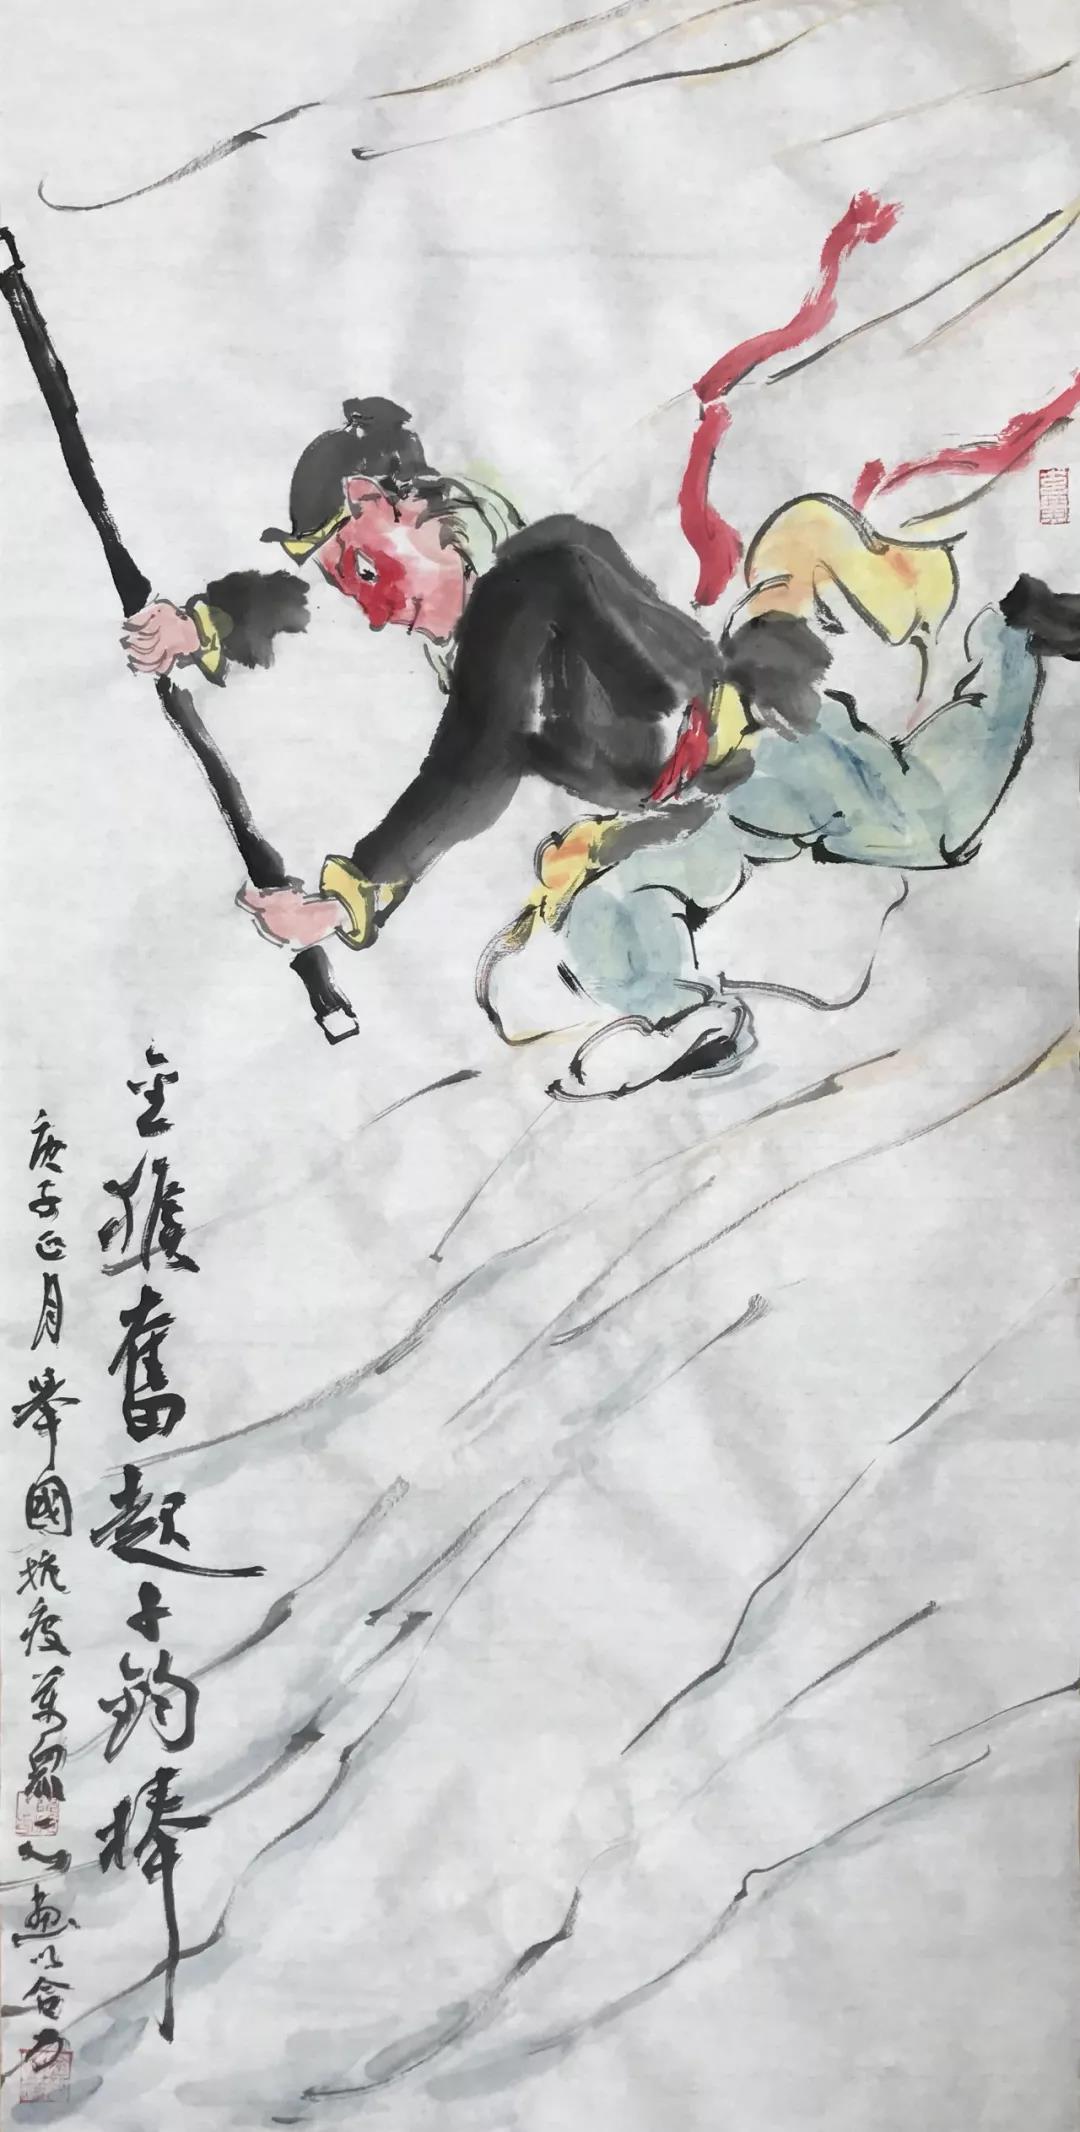 金猴奮起千鈞棒
庚子正月舉國抗疫萬眾一心畫以合力